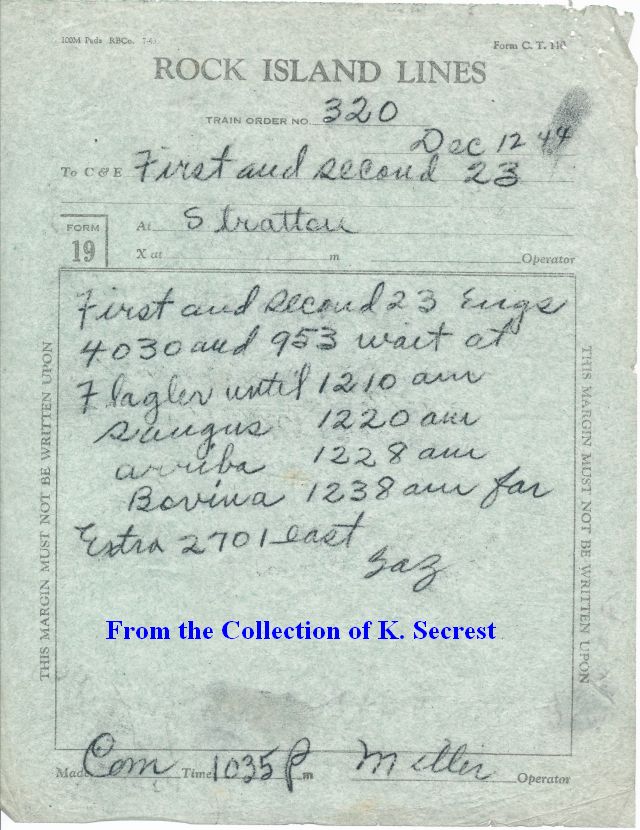 100M Pads RBCo. 7-43
Form C. T. 110
ROCK ISLAND LINES
TRAIN ORDER NO. 320
Dec 12 44
To C & E First and second 23
FORM 19
At Stratton
X at m Operator
First and second 23 Engs
4030 and 953 wait at
Flagler until 1210 am
Saugus 1220 am
arriba 1228 am
Bovina 1238 am for
Extra 2701 east
THIS MARGIN MUST NOT BE WRITTEN UPON
THIS MARGIN MUST NOT BE WRITTEN UPON
From the Collection of K. Secrest
Made Com Time 1035 P m Miller Operator